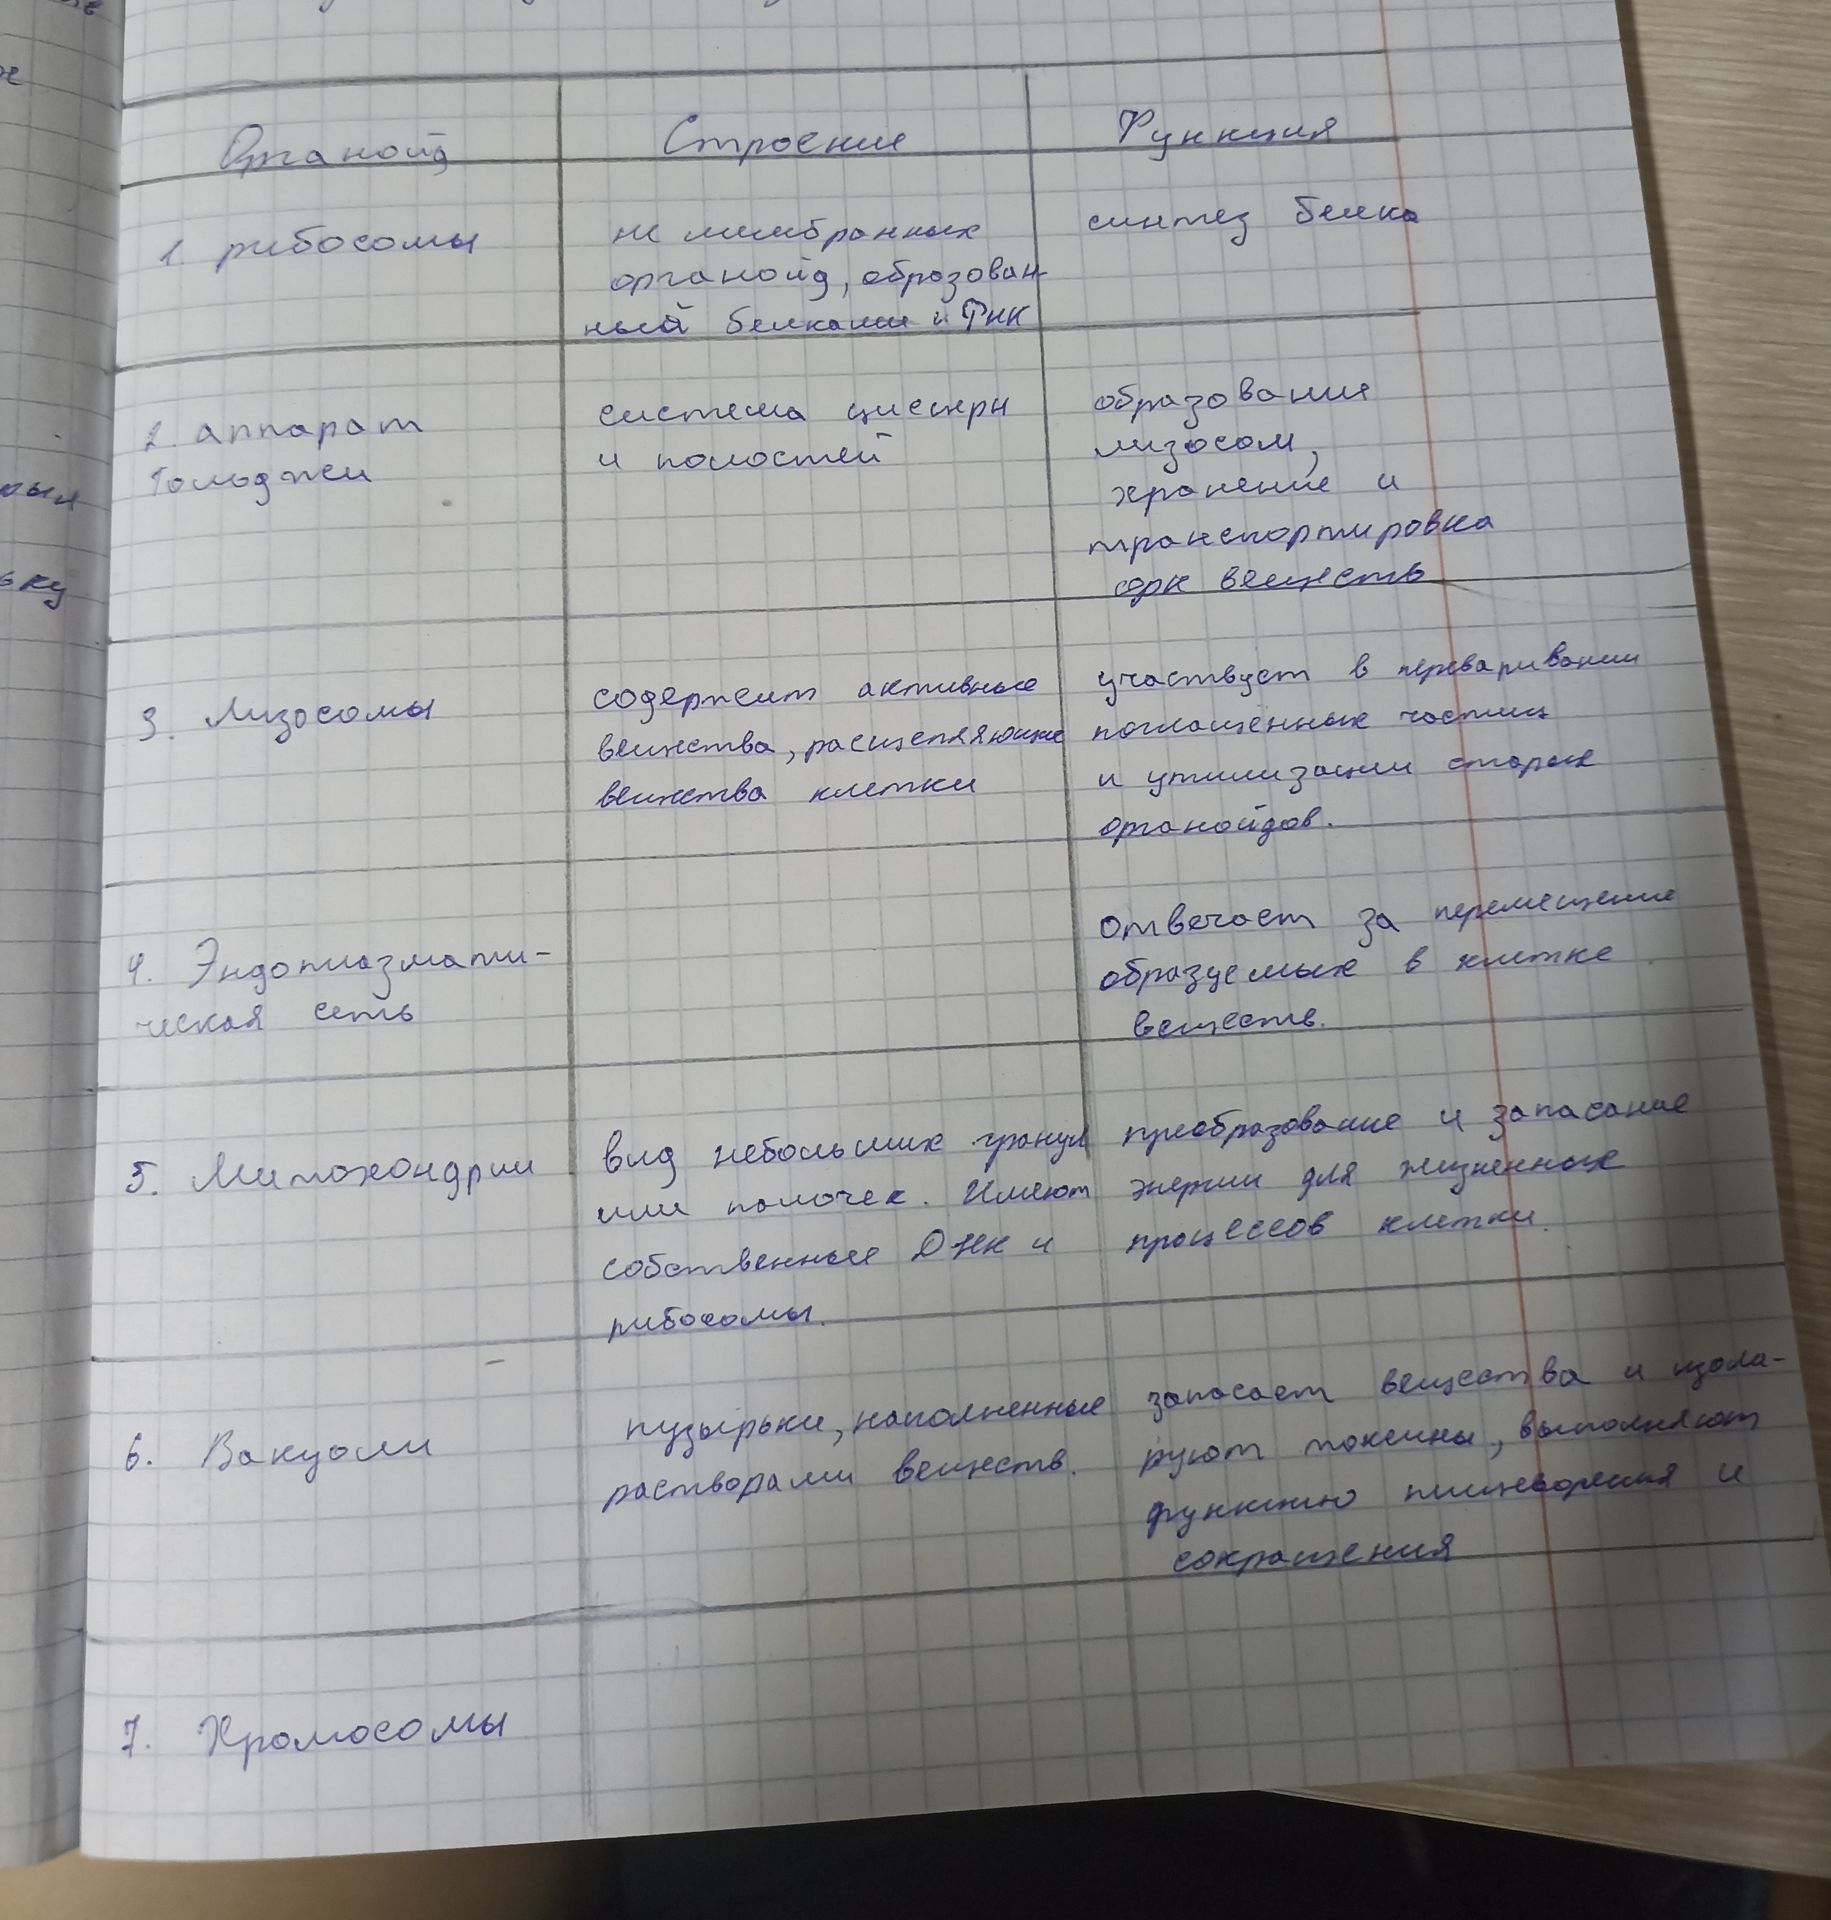 Органойд Строение Функция
1. рибосомы
не мембранных
органойд, образован-
ный белками и РНК
синтез белка
2. аппарат
Гольджи
система цистерн
и полостей
образование
лизосом,
хранение и
транспортировка
орг веществ
3. Лизосомы
содержит активные
вещества, расщепляющие
вещества клетки
участвует в переваривании
поглащенных частиц
и утилизации старых
органойдов.
4. Эндоплазмати-
ческая сеть
отвечает за перемещение
образуемых в клетке
веществ.
5. Митохондрии
вид небольших гранул
или палочек. Имеют
собственные ДНК и
рибосомы.
преобразование и запасание
энергии для жизненных
процессов клетки.
6. Вакуоли
пузырьки, наполненные
растворами веществ.
запасает вещества и изоли-
руют токсины, выполняют
функцию пищеварения и
сокращения
7. Хромосомы